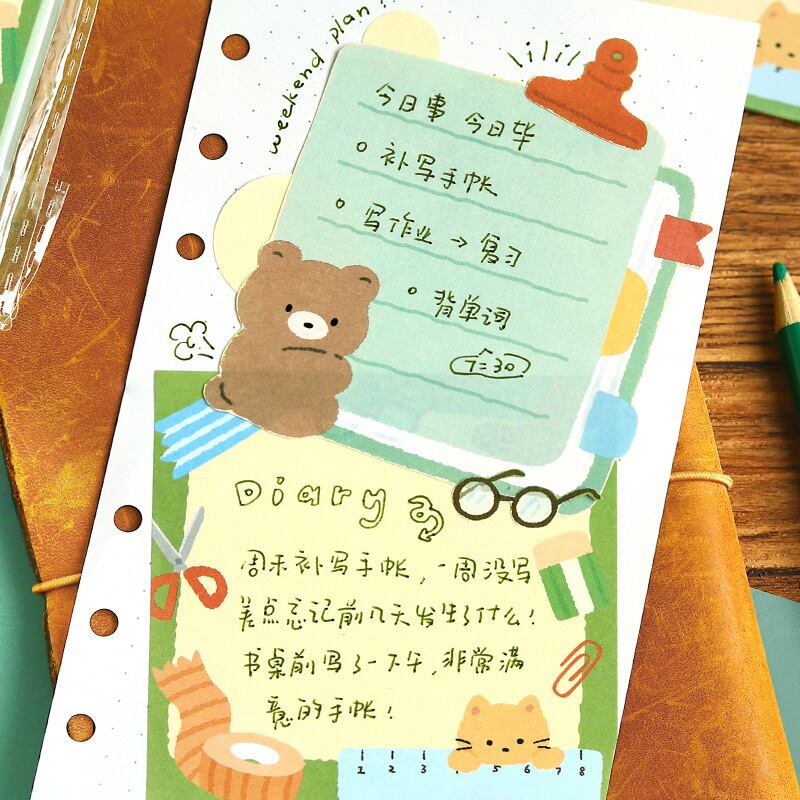 weekend plan!
今日事 今日毕
补写手帐
写作业 → 复习
背单词
7:30
Diary
周末补写手帐，一周没写
差点忘记前几天发生了什么！
书桌前写了一下午，非常满
意的手帐！
1 2 3 4 5 6 7 8